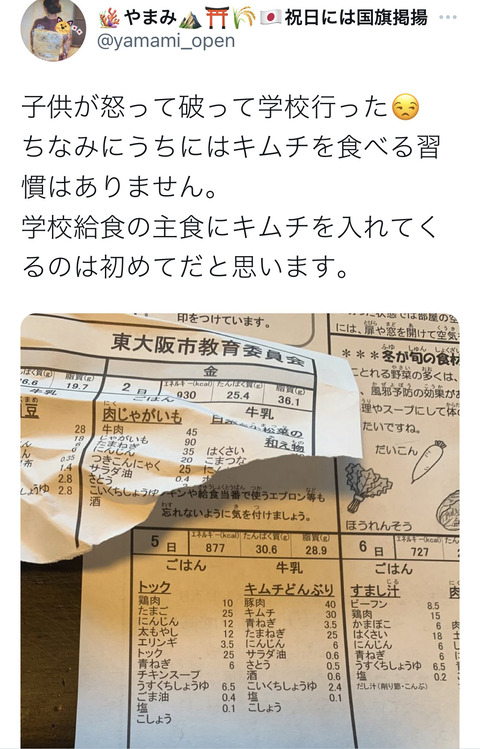 やまみ 祝日には国旗掲揚 ...
@yamami_open
子供が怒って破って学校行った😒
ちなみにうちにはキムチを食べる習
慣はありません。
学校給食の主食にキムチを入れてく
るのは初めてだと思います。
印をつけています。
東大阪市教育委員会
金
2日 エネルギー(kcal) たんぱく質(g) 脂質(g)
930 25.4 36.1
ごはん 牛乳
肉じゃがいも
牛肉 45
じゃがいも 90
たまねぎ 35
にんじん 20
つきこんにゃく 25
サラダ油 0.4
さとう
こいくちしょうゆ
酒
松菜の
和え物
はくさい
こまつな
19.7
牛乳
豆
28
18
0.35
1.4
2.8
2.8
キンや給食当番で使うエプロン等も
忘れないように気を付けましょう。
には、扉や窓を開けて空気
***冬が旬の食材
これとれる野菜の多くは、
風邪予防の効果が
理やスープにして体の
たいですね。
だいこん
ほうれんそう
5日 エネルギー(kcal) たんぱく質(g) 脂質(g)
877 30.6 28.9
ごはん 牛乳
トック
鶏肉 10
たまご 25
にんじん 12
太もやし 12
エリンギ 3.5
トック 25
青ねぎ 6
チキンスープ
うすくちしょうゆ 6.5
ごま油 0.4
塩 0.1
こしょう
キムチどんぶり
豚肉 40
キムチ 30
青ねぎ 3.5
たまねぎ 25
にんじん 6
サラダ油 0.6
さとう 0.5
酒 0.6
こいくちしょうゆ 2.4
塩 0.1
こしょう
6日 エネルギー(kcal)
727
ごはん
すまし汁
ビーフン 8.5
鶏肉 15
かまぼこ 6
はくさい 18
にんじん 6
青ねぎ 6
うすくちしょうゆ 6.5
塩 0.2
だし汁(削り節・こんぶ)